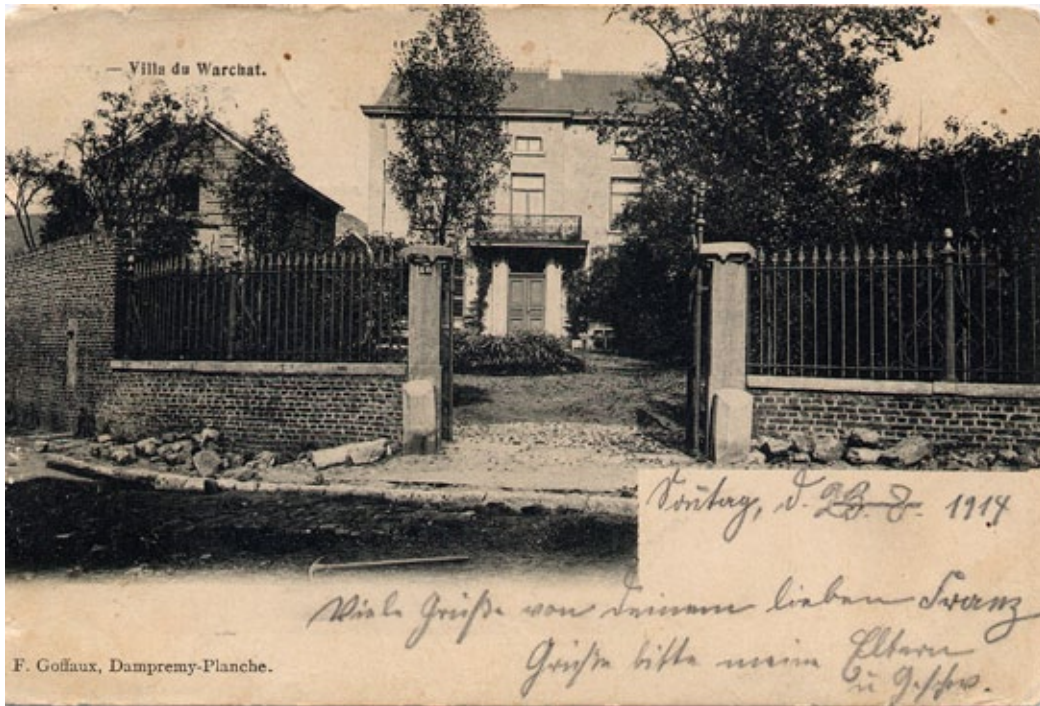 — Villa du Warchat.
Sontag, d. 23. 8. 1914
Viele Grüße von deinem lieben Franz
Grüße bitte meine Eltern
u Geschw.
F. Goffaux, Dampremy-Planche.